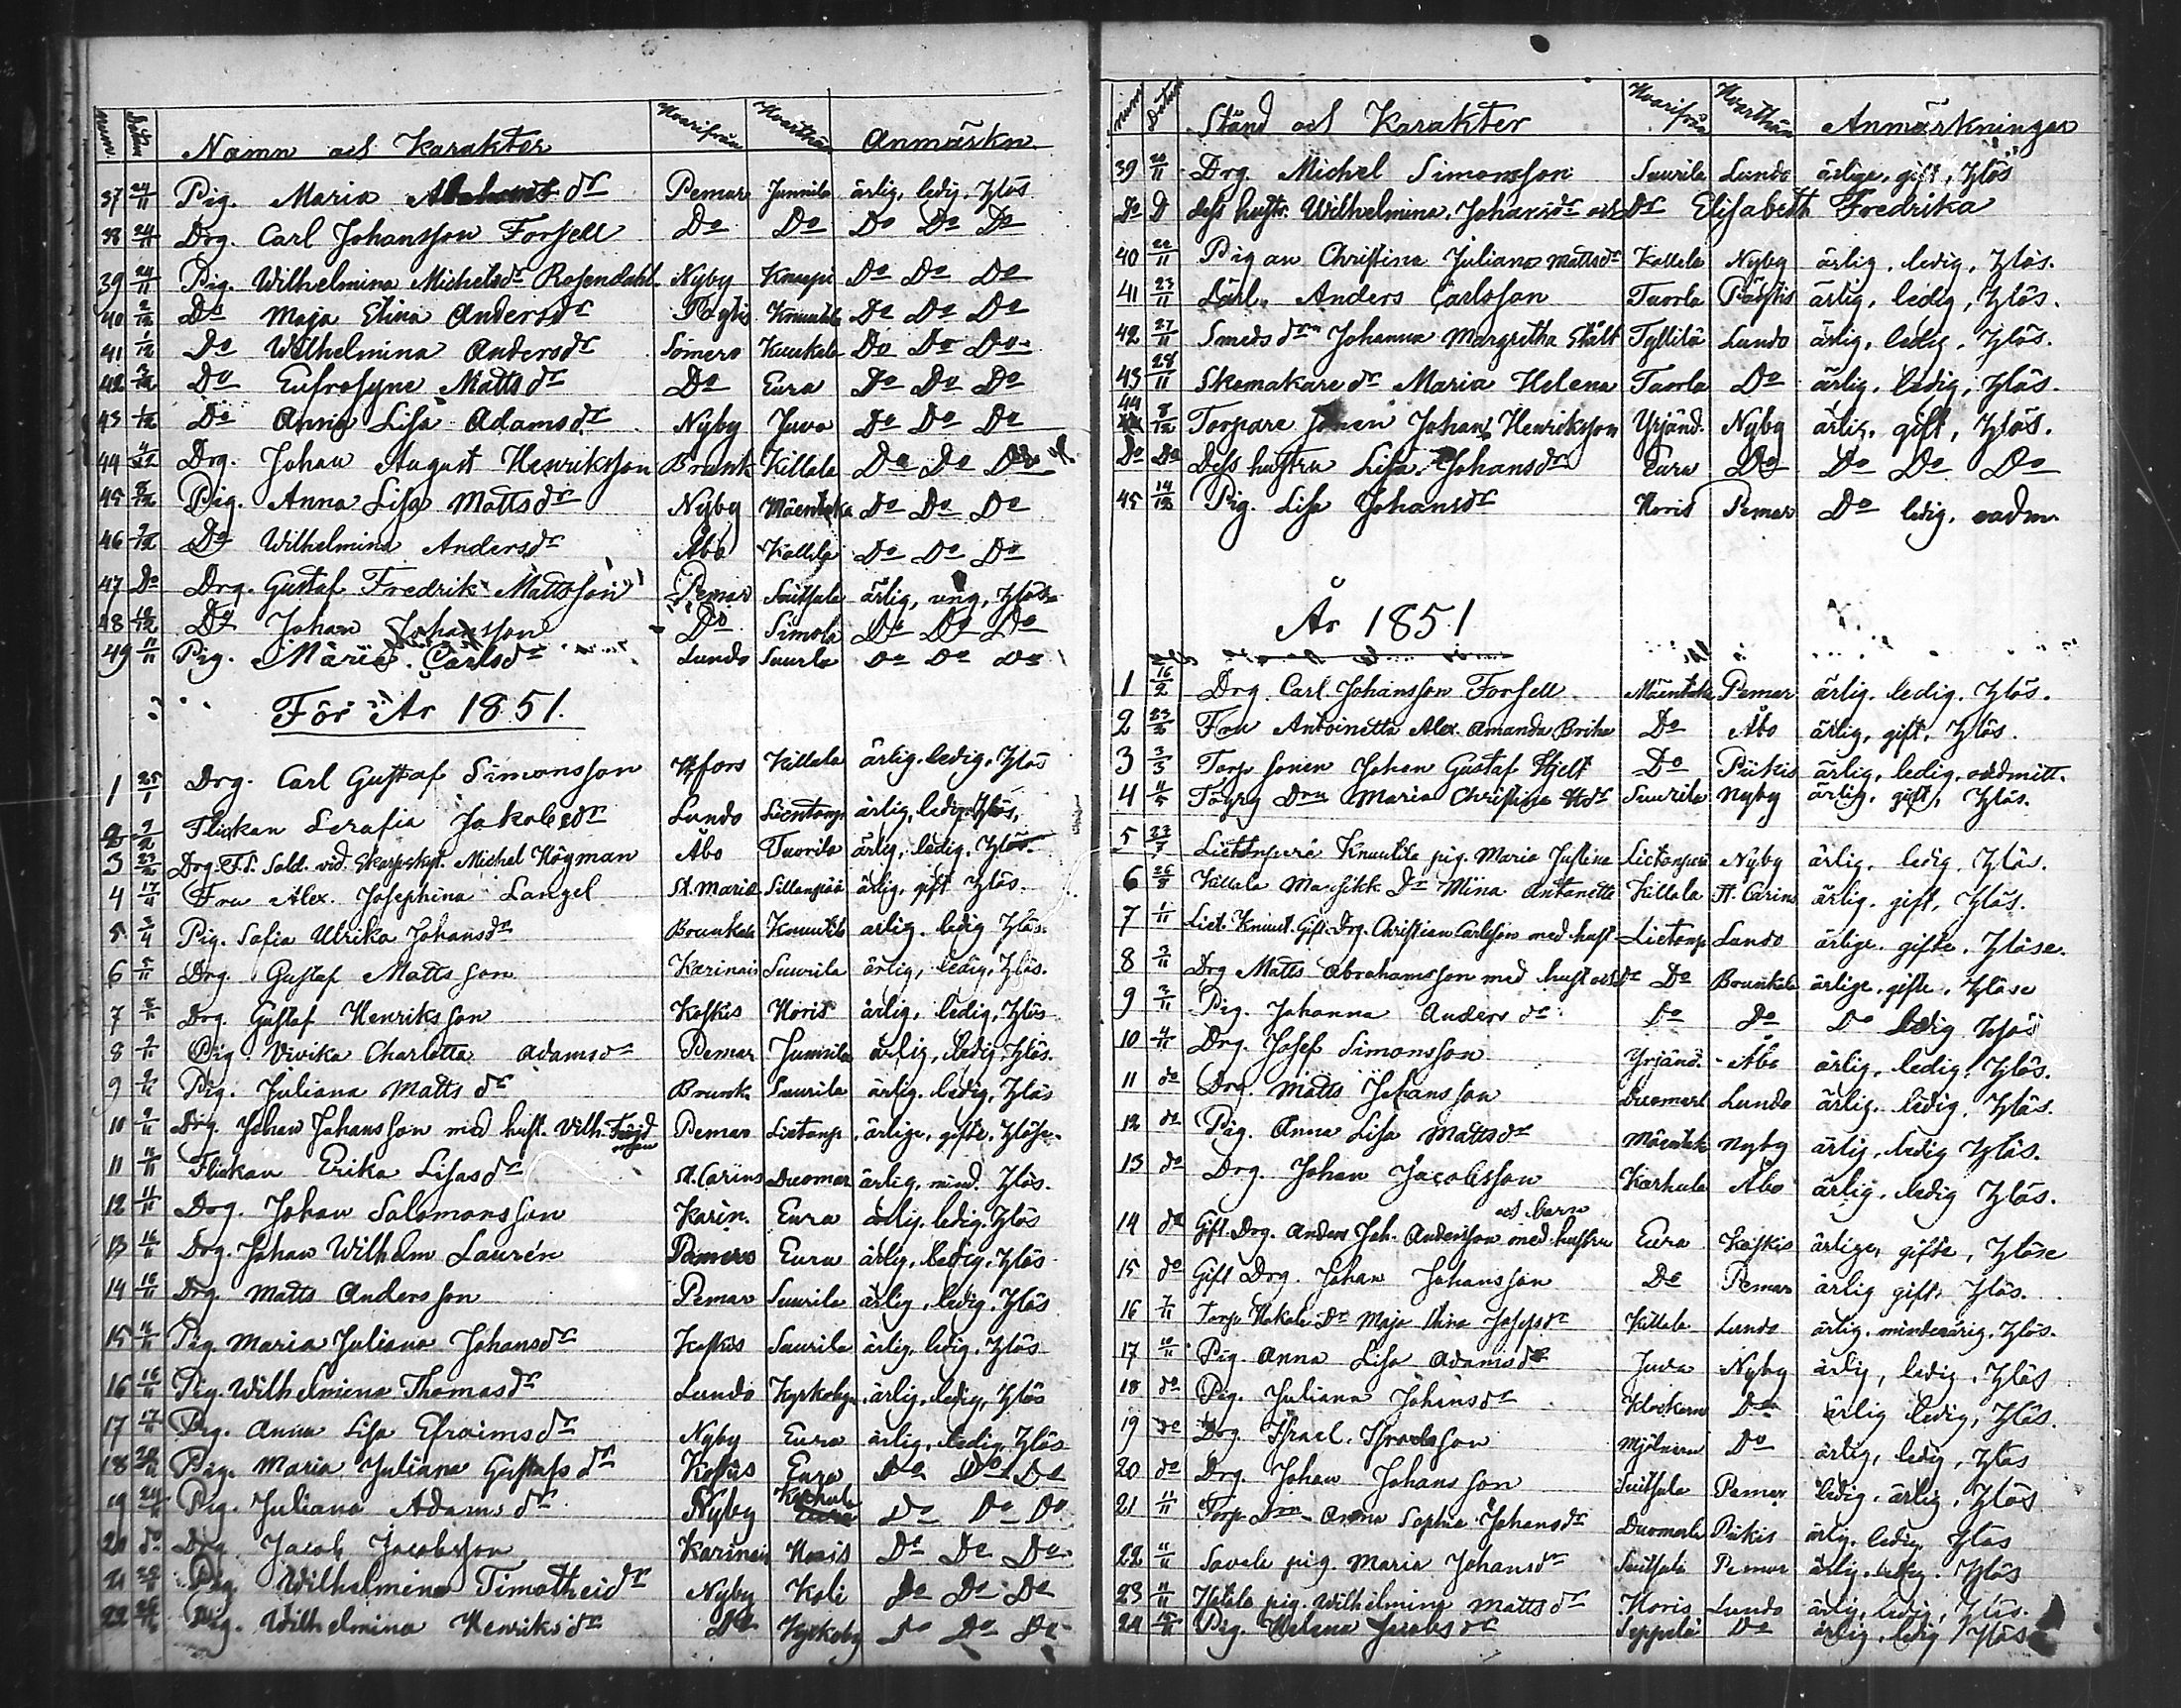 Num. Datum Namn och Karakter Hvarifrån Hvarthän Anmärkn
37 24/11 Pig. Maria dr Pemar Junnila ärlig, ledig, Hlös
38 24/11 Drg. Carl Johansson Forsell Do Do Do Do Do
39 24/11 Pig. Wilhelmina Michelsdr Rosendahl Nyby Knaapi Do Do Do
40 2/12 Do Maja Stina Andersdr Pöytis Knuutila Do Do Do
41 1/12 Do Wilhelmina Andersdr Somero Do Do Do
42 3/12 Do Eufrosyne Mattsdr Do Eura Do Do Do
43 1/12 Do Anna Lisa Adamsdr Nyby Juva Do Do Do
44 4/12 Drg. Johan August Henriksson Brunk Killala Do Do Do
45 8/12 Pig. Anna Lisa Mattsdr Nyby Mäentaka Do Do Do
46 9/12 Do Wilhelmina Andersdr Åbo Kallela Do Do Do
47 Do Drg. Gustaf Fredrik Mattsson Pemar Suitsala ärlig, ung, Hlös
48 10/12 Do Johan Johansson Do Simola Do Do Do
49 11/11 Pig. Maria Carlsdr Lundo Suurla Do Do Do
För År 1851.
1 25/1 Drg. Carl Gustaf Simonsson Hfors Killala ärlig. ledig. Hlös
2 9/2 Flickan Serafia Jakobsdr Lundo Lietonp. ärlig, ledig, Hlös,
3 23/2 Drg. F.S. Sold. vid. Skarpskyt. Michel Högman Åbo Tuorila ärlig, ledig. Hlös
4 17/4 Fru Alex. Josephina Langel St. Marie Sillanpää ärlig, gift Hlös.
5 3/4 Pig. Sofia Ulrika Johansdr Brunkala Knuutila ärlig. ledig Hlös.
6 5/11 Drg. Gustaf Mattsson Karinais Suurila ärlig, ledig, Hlös.
7 8/11 Drg. Gustaf Henriksson Koskis Horis ärlig, ledig, Hlös
8 9/11 Pig. Vivika Charlotta Adamsdr Pemar Junnila ärlig, ledig, Hlös.
9 9/11 Pig. Juliana Mattsdr Brunk. Suurila ärlig. ledig, Hlös
10 9/11 Drg. Johan Johansson med hust. Vilh. Pemar Lietonp. ärlige, gifte, Hlöse.
11 16/11 Flickan Erika Lisasdr St. Carins Duomar ärlig, mind. Hlös.
12 11/11 Drg. Johan Salomonsson Karin. Eura ärlig. ledig. Hlös
13 16/11 Drg. Johan Wilhelm Laurén Pemar Eura ärlig, ledig, Hlös
14 16/11 Drg Matts Andersson Pemar Suurila ärlig, ledig, Hlös
15 16/11 Pig. Maria Juliana Johansdr Koskis Suurila ärlig, ledig. Hlös
16 16/11 Pig. Wilhelmina Thomasdr Lundo Kyrkoby ärlig, ledig, Hlös
17 17/11 Pig. Anna Lisa Efraimsdr Nyby Eura ärlig, ledig, Hlös
18 20/11 Pig. Maria Juliana Gustafsdr Koskis Eura Do Do Do
19 24/11 Pig. Juliana Adamsdr Nyby Karhula Do Do Do
20 do Drg Jacob Jacobsson Karinais Horis Do Do Do
21 Pig. Wilhelmina Timotheidr Nyby Koli Do Do Do
22 Pig. Wilhelmina Henriksdr Do Kyrkoby Do Do Do
Num Datum Stånd och Karakter Hvarifrån Hvarthän Anmärkningar
39 20/11 Drg. Michel Simonsson Suurila Lundo ärlige, gift, Hlös
Do D dess hustr. Wilhelmina Johansdr och Dr Elisabeth Fredrika
40 22/11 Pigan Christina Juliana Mattsdr Kallela Nyby ärlig. ledig, Hlös.
41 23/11 Karl. Anders Carlsson Tuorla Pöytis ärlig, ledig, Hlös.
42 27/11 Smeds drn Johanna Margretha Stålt Tyllilä Lundo ärlig, ledig, Hlös.
43 28/11 Skomakare dr Maria Helena Tuorla Do ärlig, ledig, Hlös.
44 8/12 Torpare sonen Johan Henriksson Yrjänd. Nyby ärlig, gift, Hlös.
Do Do Dess hustru Lisa Johansdr Eura Do Do Do Do
45 14/12 Pig. Lisa Johansdr Horis Pemar Do ledig, oadm.
År 1851
1 16/2 Drg. Carl Johansson Forsell Mäentaka Pemar ärlig. ledig. Hlös.
2 23/2 Fru Antoinetta Alex. Amanda Do Åbo ärlig, gift, Hlös.
3 3/3 Torp sonen Johan Gustaf Hjelt Do Piikis ärlig, ledig, oadmitt.
4 11/5 Maria Christina Suurila Nyby ärlig, gift, Hlös.
5 23/7 Lietonperä Knuutila pig. Maria Justina Lietonperä Nyby ärlig. ledig. Hlös.
6 26/8 Killala Dr Mina Antonette Killala St. Carins ärlig. gift, Hlös.
7 1/11 Liet. Knuut. Gift. Drg. Christian Carlsson med hust Lietonp Lundo ärlige. gifte. Hlöse.
8 2/11 Drg Matts Abrahamsson med hust och dr Do Brunkala ärlige. gifte, Hlöse
9 2/11 Pig. Johanna Andersdr Do Do Do ledig Hlös
10 4/11 Drg. Josef Simonsson Yrjänd. Åbo ärlig, ledig, Hlös.
11 do Drg. Matts Johansson Duomarl Lundo ärlig. ledig. Hlös.
12 do Pig. Anna Lisa Mattsdr Mäentak Nyby ärlig, ledig Hlös.
13 do Drg. Johan Jacobsson Karhula Åbo ärlig. ledig Hlös.
14 do Gift. Drg. Anders Joh. Andersson med hustru och barn Eura Koskis ärlige, gifte, Hlöse
15 do Gift Drg. Johan Johansson Do Pemar ärlig gift. Hlös.
16 7/11 Torp. Hakala Dr Maja Stina Josefsdr Killala Lundo ärlig. minderårig. Hlös.
17 10/11 Pig. Anna Lisa Adamsdr Juva Nyby ärlig, ledig, Hlös
18 do Pig. Juliana Johansdr Klockarn Do ärlig ledig, Hlös.
19 do Drg. Israel Israelsson Mjölnarn Do ärlig, ledig, Hlös
20 do Drg. Johan Johansson Suitsala Pemar ledig. ärlig, Hlös
21 11/11 Torp. Drn Anna Sophia Johansdr Duomarla Piikis ärlig. ledig Hlös
22 11/11 Savela pig. Maria Johansdr Suitsala Pemar ärlig. ledig. Hlös
23 11/11 pig. Wilhelmina Mattsdr Horis Lundo ärlig, ledig, Hlös.
24 Pig. Helena Jacobsdr Seppälä Do ärlig, ledig Hlös